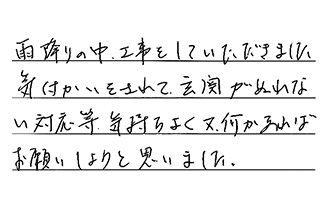 雨降りの中、工事をしていただきました
気付かいをされて、玄関がぬれな
い対応等、気持ちよく又、何かあれば
お願いしようと思いました。